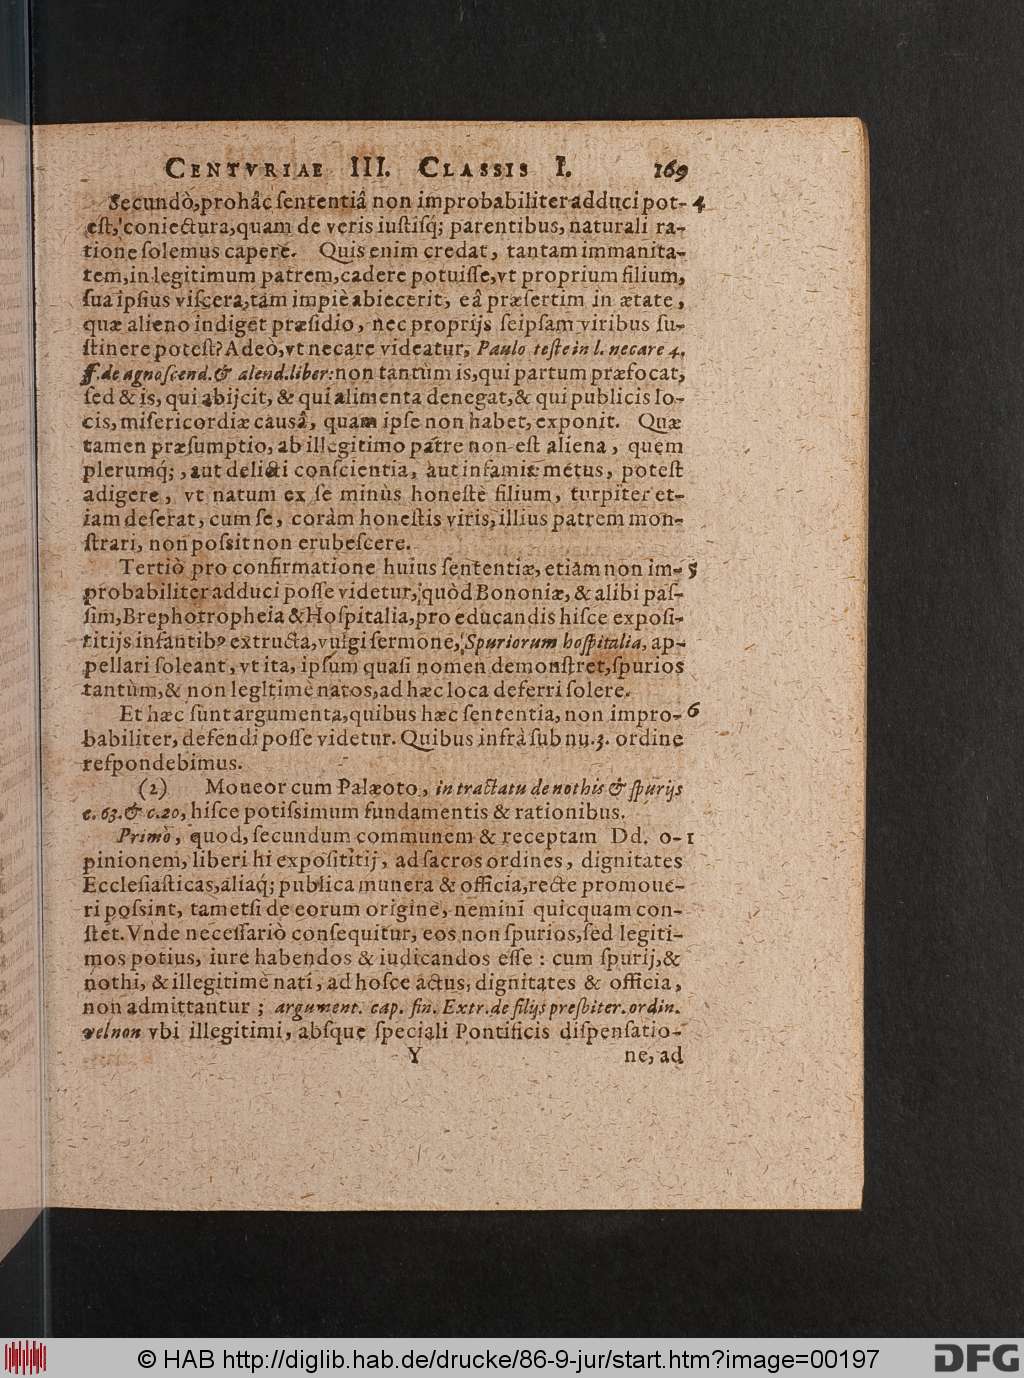 CENTVRIAE III. CLASSIS I. 169
Secundò, pro hâc sententiâ non improbabiliter adduci pot- 4
est, coniectura, quam de veris iustisq́; parentibus, naturali ra-
tione solemus capere. Quis enim credat, tantam immanita-
tem, in legitimum patrem, cadere potuisse, vt proprium filium,
sua ipsius viscera, tàm impiè abiecerit, eâ præsertim in ætate,
quæ alieno indiget præsidio, nec proprijs seipsam viribus su-
stinere potest? Adeò, vt necare videatur, Paulo teste in l. necare 4.
ff. de agnoscend. & alend. liber: non tantùm is, qui partum præfocat,
sed & is, qui abijcit, & qui alimenta denegat, & qui publicis lo-
cis, misericordiæ causâ, quam ipse non habet, exponit. Quæ
tamen præsumptio, ab illegitimo patre non est aliena, quem
plerumq́;, aut delicti conscientia, aut infamiæ metus, potest
adigere, vt natum ex se minùs honestè filium, turpiter et-
iam deserat, cum se, coràm honestis viris, illius patrem mon-
strari, non possit non erubescere.
Tertiò pro confirmatione huius sententiæ, etiàm non im- 5
probabiliter adduci posse videtur, quòd Bononiæ, & alibi pas-
sim, Brephotropheia & Hospitalia, pro educandis hisce exposi-
titijs infantibꝰ extructa, vulgi sermone, Spuriorum hospitalia, ap-
pellari soleant, vt ita, ipsum quasi nomen demonstret, spurios
tantùm, & non legItimè natos, ad hæc loca deferri solere.
Et hæc sunt argumenta, quibus hæc sententia, non impro- 6
babiliter, defendi posse videtur. Quibus infrà sub nu. 3. ordine
respondebimus.
(2) Moueor cum Palæoto, in tractatu de nothis & spurijs
c. 63. & c. 20, hisce potissimum fundamentis & rationibus.
Primò, quod, secundum communem & receptam Dd. o- 1
pinionem, liberi hi exposititij, ad sacros ordines, dignitates
Ecclesiasticas, aliaq́; publica munera & officia, recte promoue-
ri possint, tametsi de eorum origine, nemini quicquam con-
stet. Vnde necessariò consequitur, eos non spurios, sed legiti-
mos potius, iure habendos & iudicandos esse: cum spurij, &
nothi, & illegitimè nati, ad hosce actus, dignitates & officia,
non admittantur; argument. cap. fin. Extr. de filijs presbiter. ordin.
vel non vbi illegitimi, absque speciali Pontificis dispensatio-
Y ne, ad
© HAB http://diglib.hab.de/drucke/86-9-jur/start.htm?image=00197
DFG